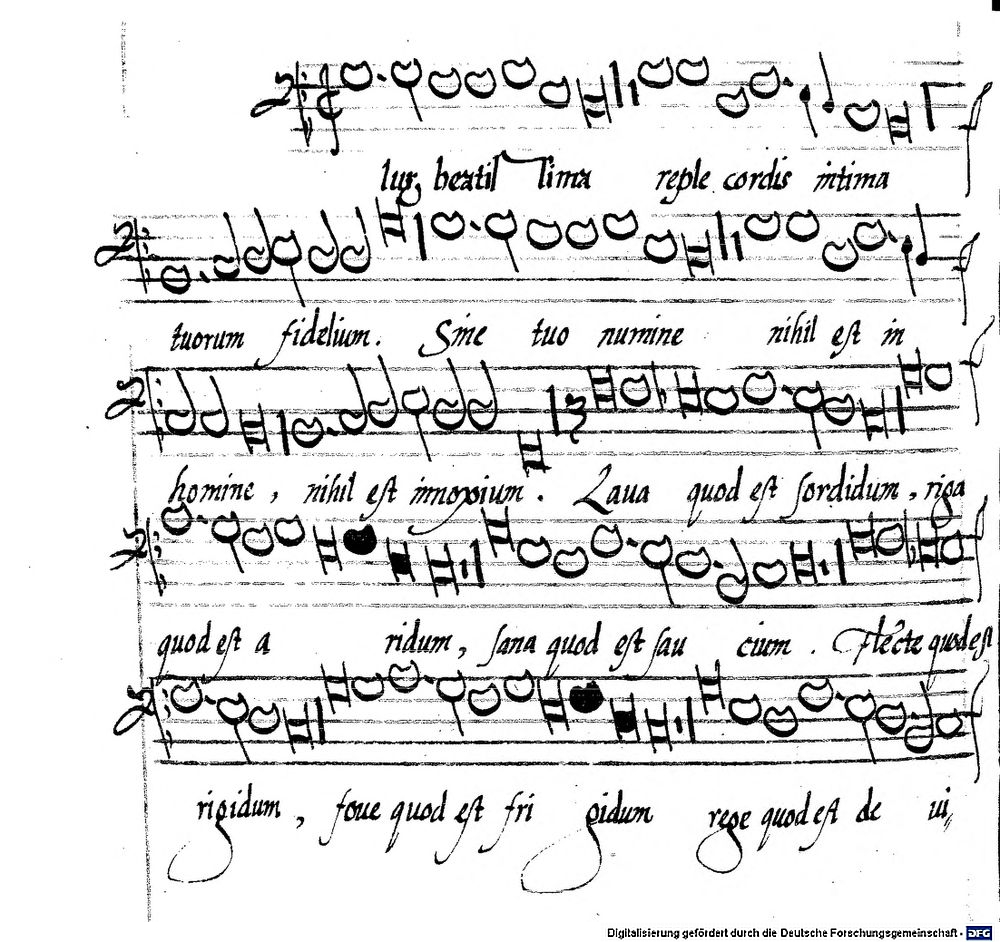 lux beatissima reple cordis intima
tuorum fidelium. Sine tuo numine nihil est in
homine, nihil est innoxium. Laua quod est sordidum, riga
quod est aridum, sana quod est saucium. Flecte quod est
rigidum, foue quod est frigidum rege quod est deui,,
Digitalisierung gefördert durch die Deutsche Forschungsgemeinschaft - DFG